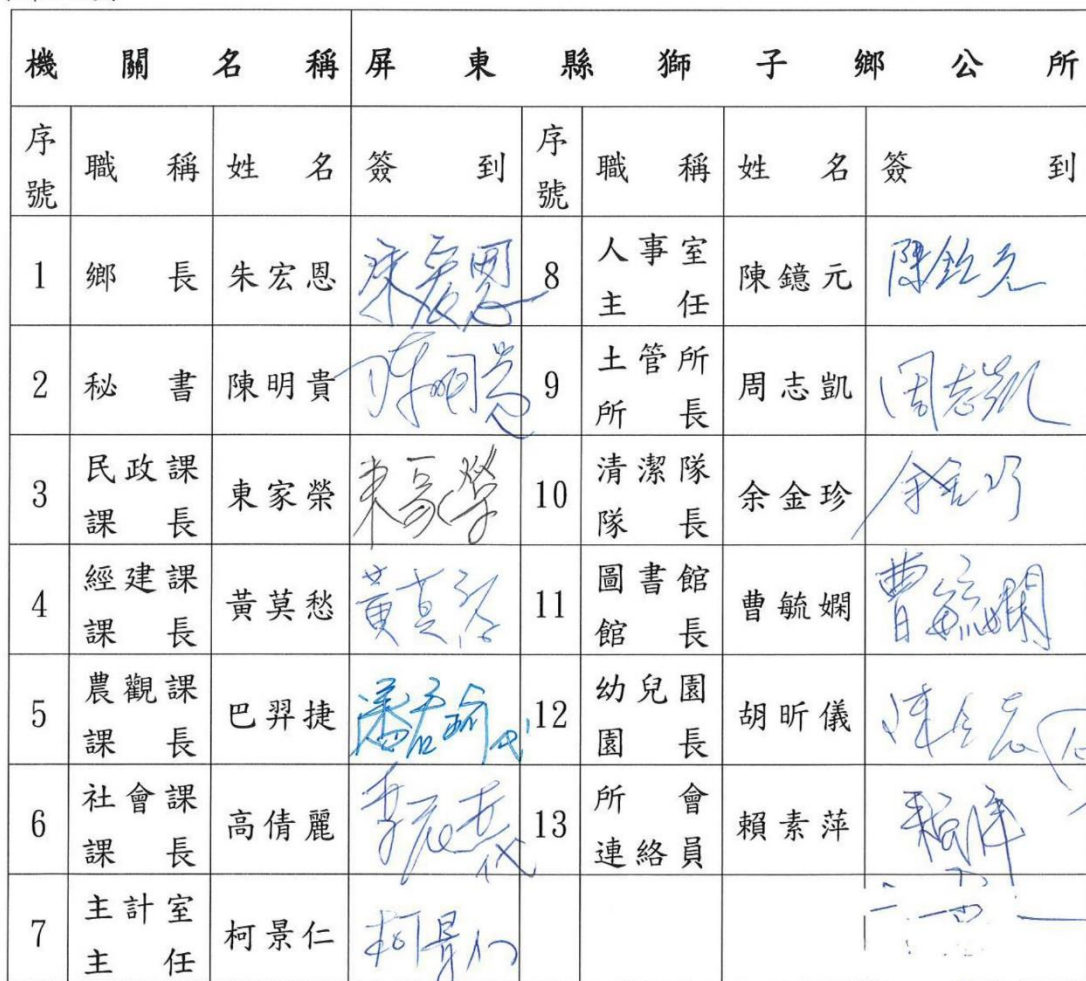 機關名稱 屏東縣獅子鄉公所
序號 職稱 姓名 簽到 序號 職稱 姓名 簽到
1 鄉長 朱宏恩 朱宏恩 8 人事室主任 陳鐿元
2 秘書 陳明貴 陳明貴 9 土管所所長 周志凱 周志凱
3 民政課課長 東家榮 東家榮 10 清潔隊隊長 余金珍 余金珍
4 經建課課長 黃莫愁 黃莫愁 11 圖書館館長 曹毓嫻 曹毓嫻
5 農觀課課長 巴羿捷 代 12 幼兒園園長 胡昕儀
6 社會課課長 高倩麗 代 13 所會連絡員 賴素萍
7 主計室主任 柯景仁 柯景仁